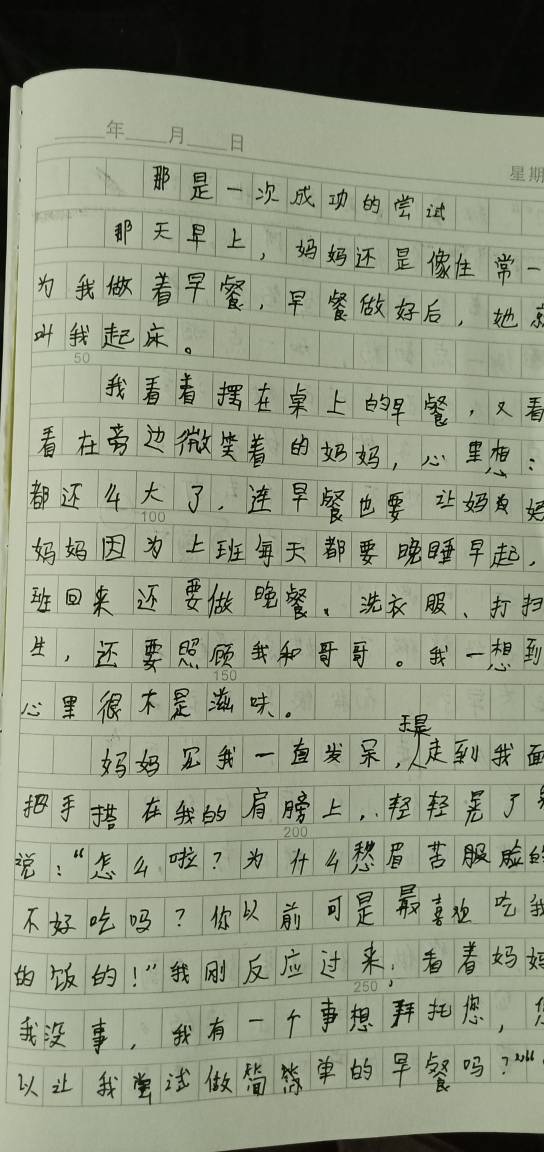 年 月 日
星期
那是一次成功的尝试
那天早上，妈妈还是像往常一
为我做着早餐，早餐做好后，她就
叫我起床。
50
我看着摆在桌上的早餐，又看
看在旁边微笑着的妈妈，心里想：
都还么大了，连早餐也要让妈妈
100
妈妈因为上班每天都要晚睡早起，
班回来还要做晚餐、洗衣服、打扫
生，还要照顾我和哥哥。我一想到
150
心里很不是滋味。
妈妈见我一直发呆，于是走到我面
把手搭在我的肩膀上，轻轻晃了
200
说：“怎么啦？为什么愁眉苦脸的
不好吃吗？你以前可是最喜欢吃我
的饭的！”我刚反应过来，看着妈妈
250
我没事，我有一个事想拜托您，您
以让我尝试做简单的早餐吗？”